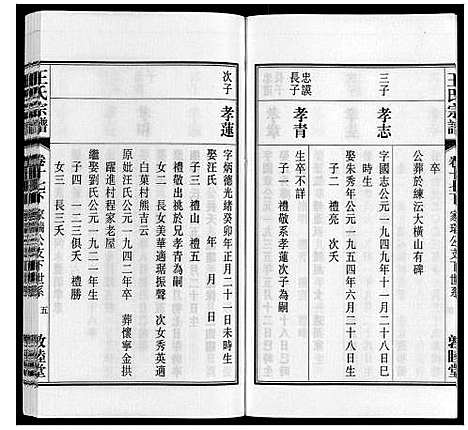 王氏宗譜
敦睦堂
卒
公葬於練沄大橫山有碑
三子
孝志
字國志公元一九四九年十一月二十八日巳
時生
娶朱秀年公元一九五四年六月二十八日生
子二 禮亮 次夭
忠謨
長子
孝青
生卒不詳
子一 禮敬系孝蓮次子為嗣
次子
孝蓮
字炳德光緒癸卯年正月二十一日未時生
娶汪氏 年 月 日
子三 禮山 禮五
禮敬出祧於兄孝青為嗣
女二 長女美華適琚振聲 次女秀英適
白菓村熊吉云
原妣汪氏公元一九四二年卒 葬懷寧金拱
躍進村程家老屋
繼娶劉氏公元一九二一年生
子四 一二三俱夭 禮勝
女三 長三夭
王氏宗譜
五
敦睦堂